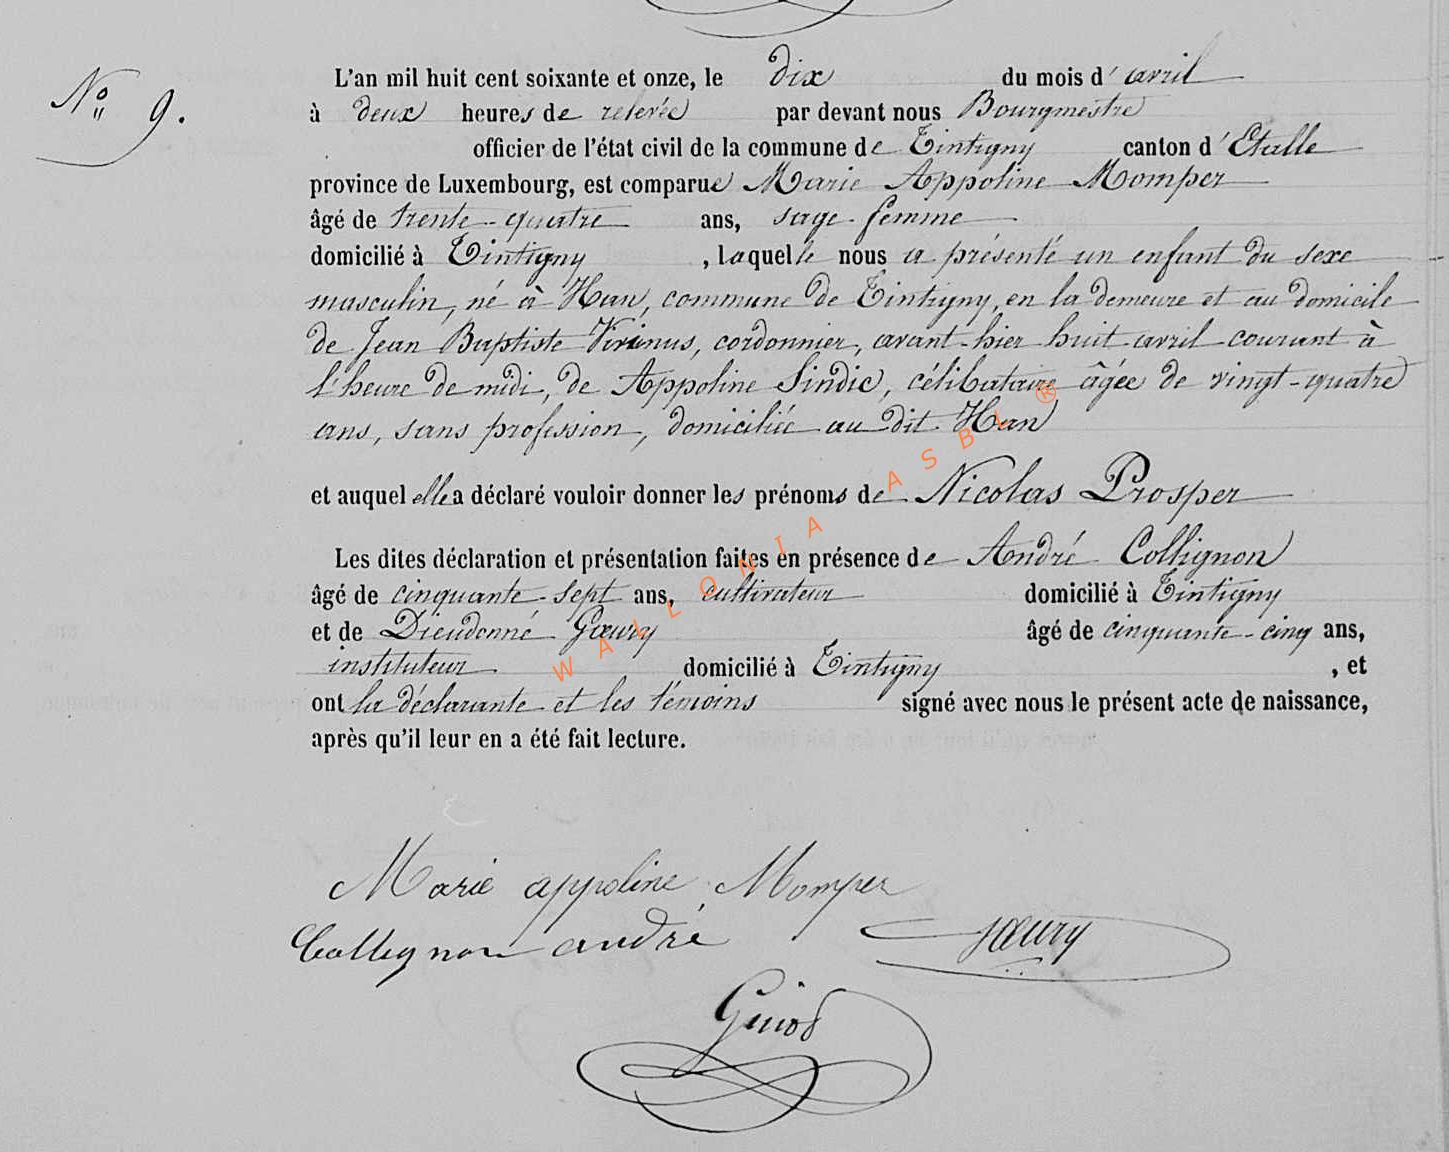 N° 9.
L'an mil huit cent soixante et onze, le dix du mois d'avril
à deux heures de relevée par devant nous Bourgmestre
officier de l'état civil de la commune de Tintigny canton d'Etalle
province de Luxembourg, est comparue Marie Appoline Momper
âgé de trente-quatre ans, sage-femme
domicilié à Tintigny, laquelle nous a présenté un enfant du sexe
masculin, né à Han, commune de Tintigny, en la demeure et au domicile
de Jean Baptiste Virinus, cordonnier, avant-hier huit avril courant à
l'heure de midi, de Appoline Sindic, célibataire âgée de vingt-quatre
ans, sans profession, domiciliée au dit Han
et auquel elle a déclaré vouloir donner les prénoms de Nicolas Prosper
Les dites déclaration et présentation faites en présence de André Collignon
âgé de cinquante-sept ans, cultivateur domicilié à Tintigny
et de Dieudonné Gœury âgé de cinquante-cinq ans,
instituteur domicilié à Tintigny, et
ont la déclarante et les témoins signé avec nous le présent acte de naissance,
après qu'il leur en a été fait lecture.
WALLONIA ASBL ®
Marie appoline Momper
Collignon andré Gœury